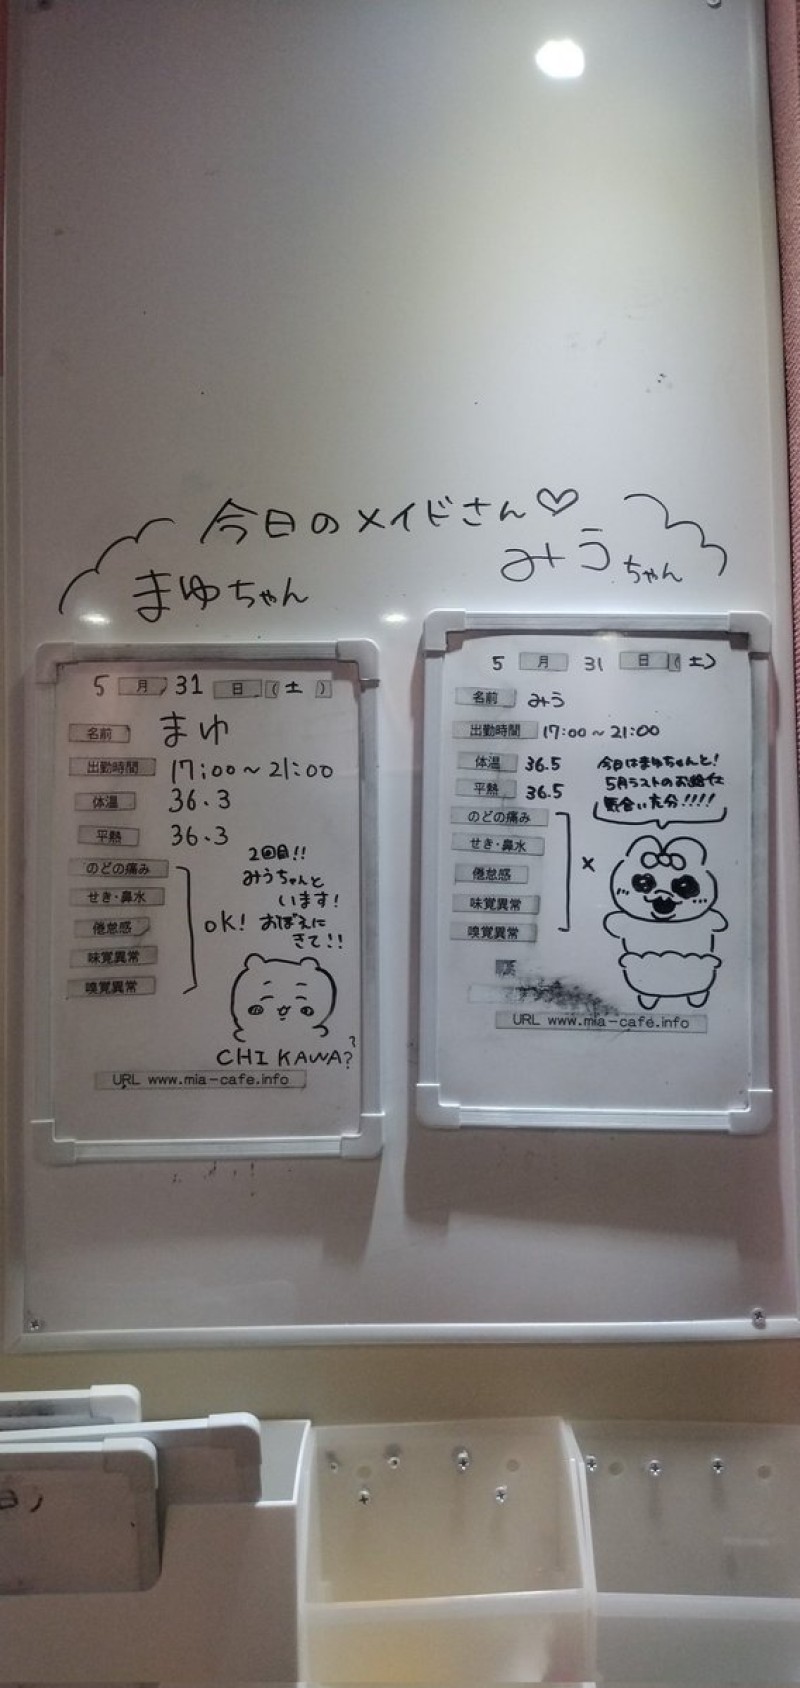 今日のメイドさん♡
まゆちゃん
みうちゃん
5月31日(土)
名前 まゆ
出勤時間 17:00~21:00
体温 36.3
平熱 36.3
のどの痛み
せき・鼻水
倦怠感
味覚異常
嗅覚異常
OK!
2回目!!
みうちゃんと
います!
おぼえに
きて!!
CHIKAWA?
URL www.mia-cafe.info
5月31日(土)
名前 みう
出勤時間 17:00~21:00
体温 36.5
平熱 36.5
のどの痛み
せき・鼻水
倦怠感
味覚異常
嗅覚異常
×
今日はまゆちゃんと!
5月ラストのお給仕
気合い充分!!!!
URL www.mia-cafe.info